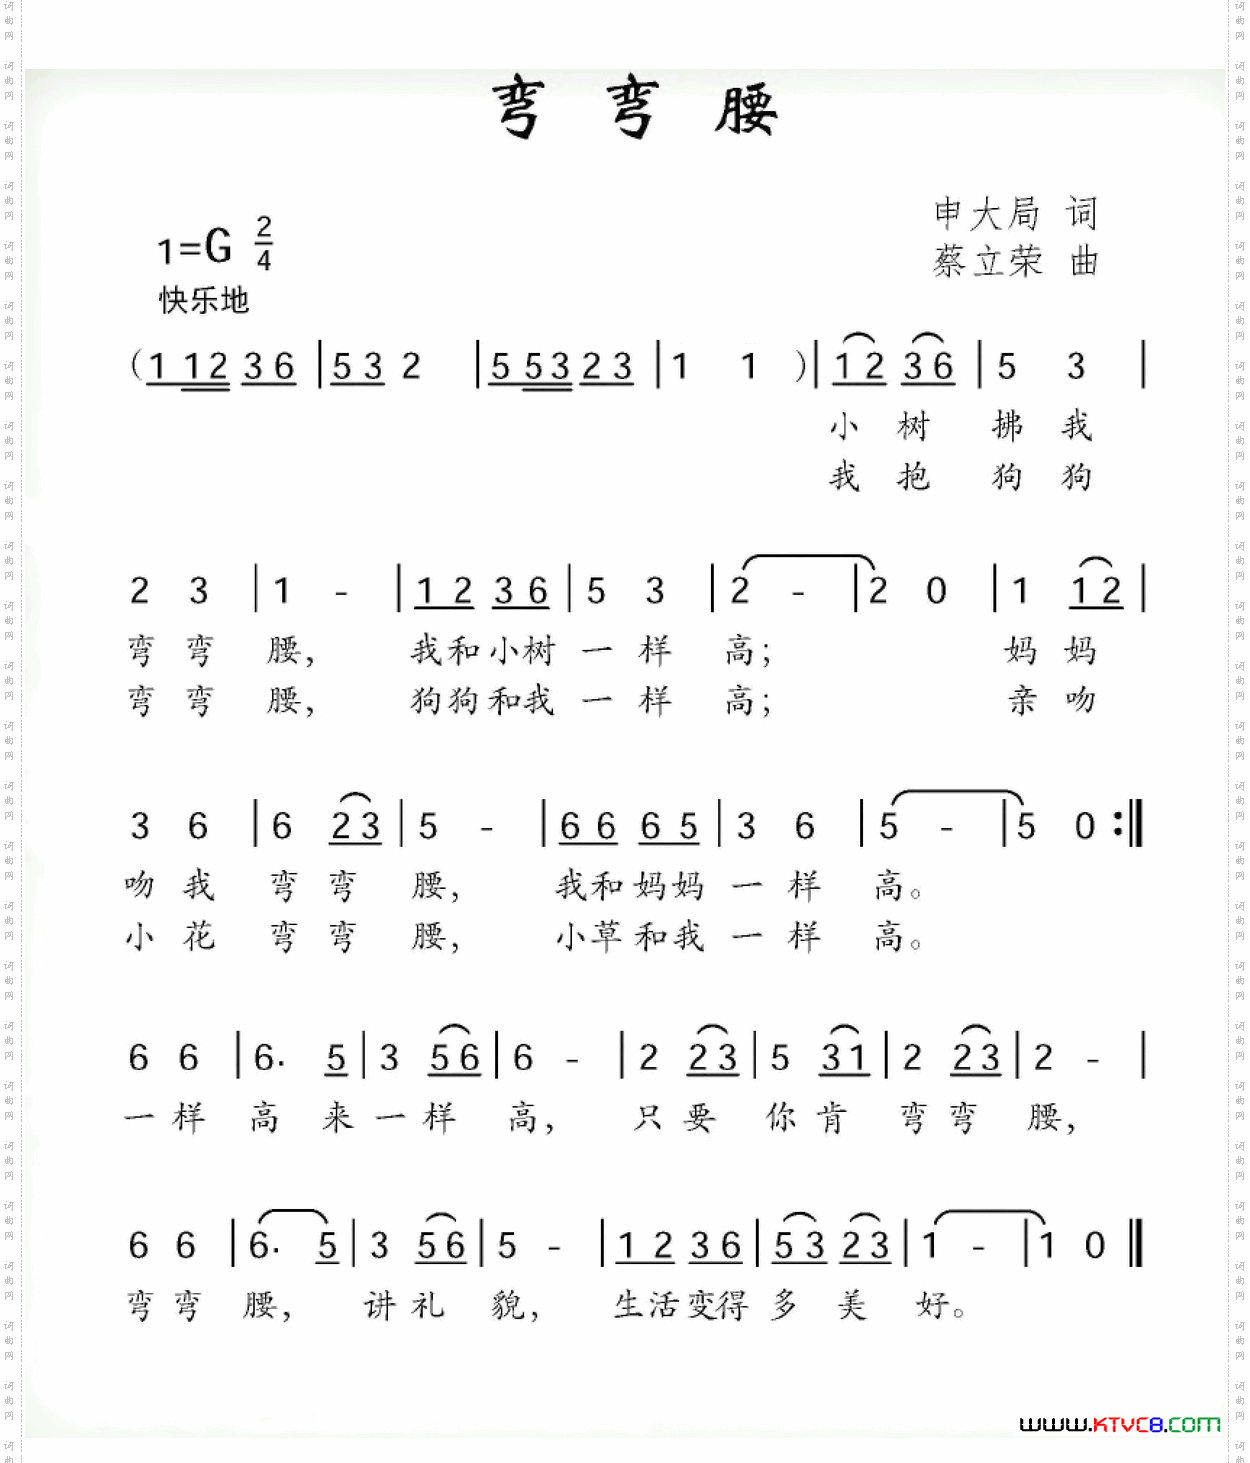 弯 弯 腰
申大局 词
1=G 2/4
蔡立荣 曲
快乐地
（1 12 3 6 | 5 3 2 | 5 53 2 3 | 1 1 ）| 1 2 3 6 | 5 3 |
小 树 拂 我
我 抱 狗 狗
2 3 | 1 - | 1 2 3 6 | 5 3 | 2 - | 2 0 | 1 1 2 |
弯 弯 腰， 我和小树 一 样 高； 妈 妈
弯 弯 腰， 狗狗和我 一 样 高； 亲 吻
3 6 | 6 2 3 | 5 - | 6 6 6 5 | 3 6 | 5 - | 5 0 :‖
吻 我 弯 弯 腰， 我和妈妈 一 样 高。
小 花 弯 弯 腰， 小草和我 一 样 高。
6 6 | 6. 5 | 3 5 6 | 6 - | 2 2 3 | 5 3 1 | 2 2 3 | 2 - |
一 样 高 来 一 样 高， 只 要 你 肯 弯 弯 腰，
6 6 | 6. 5 | 3 5 6 | 5 - | 1 2 3 6 | 5 3 2 3 | 1 - | 1 0 ‖
弯 弯 腰， 讲 礼 貌， 生活变得 多 美 好。
www.KTVC8.COM